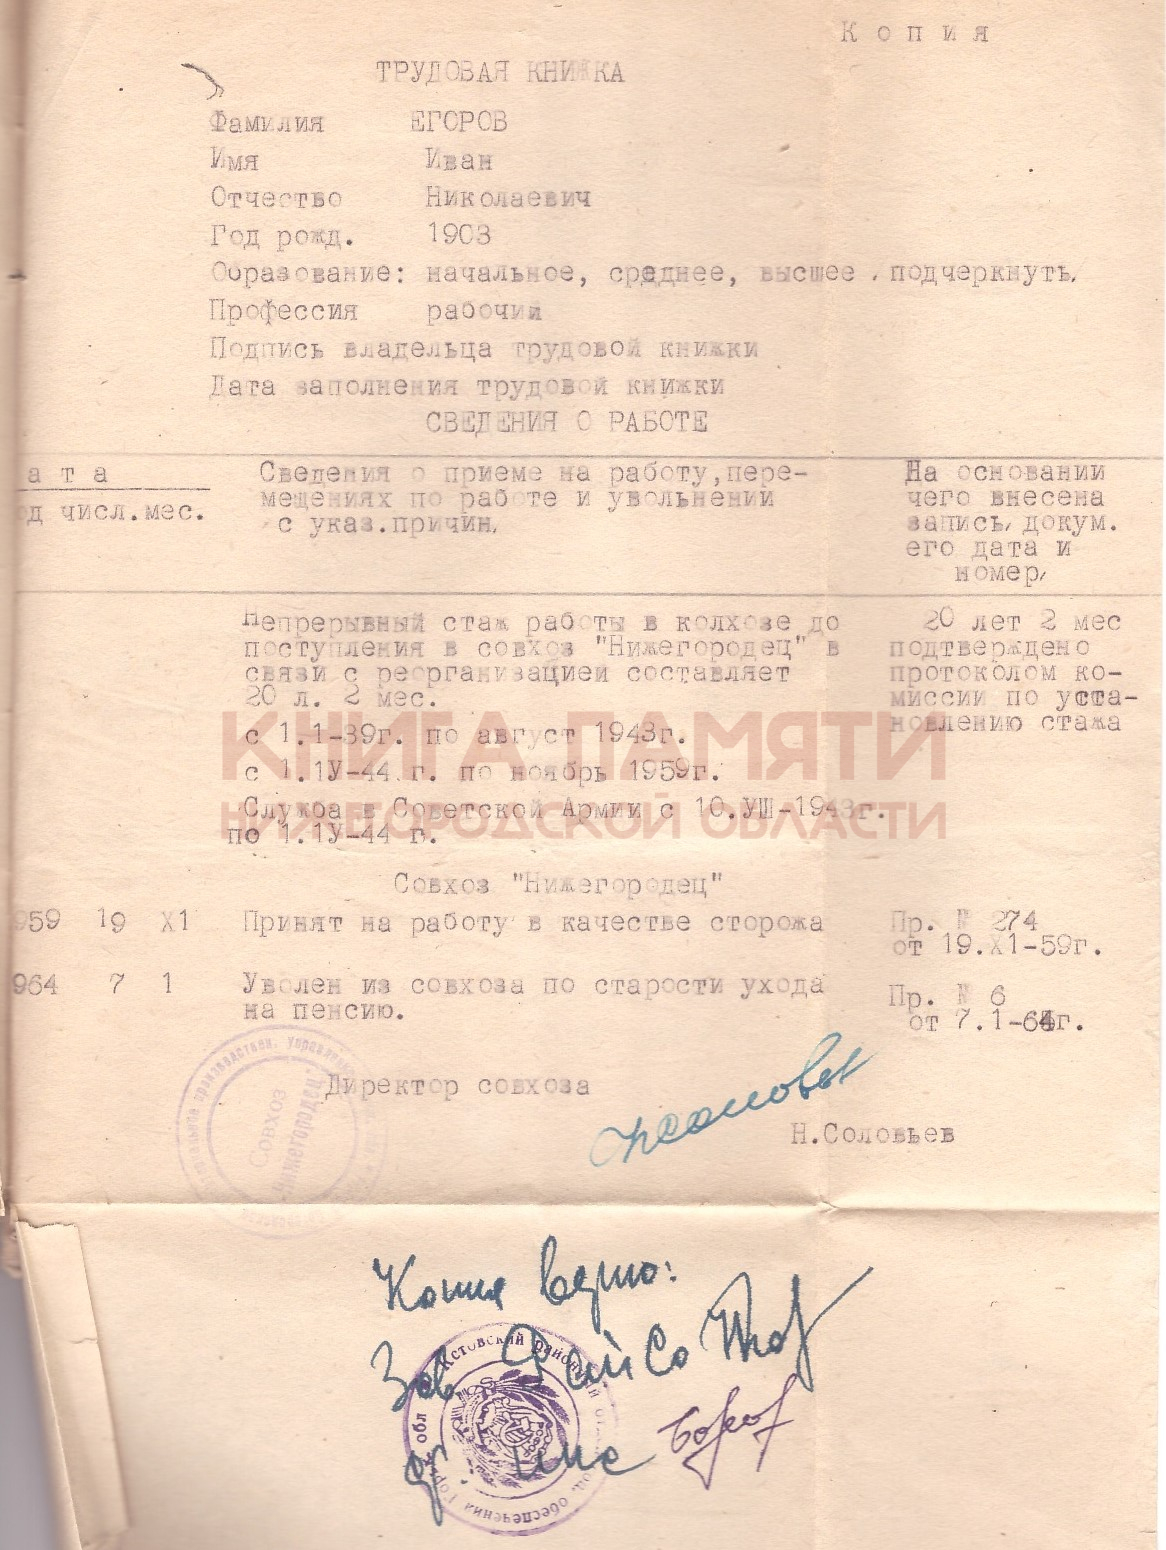 Копия
ТРУДОВАЯ КНИЖКА
Фамилия ЕГОРОВ
Имя Иван
Отчество Николаевич
Год рожд. 1903
Образование: начальное, среднее, высшее . подчеркнуть.
Профессия рабочий
Подпись владельца трудовой книжки
Дата заполнения трудовой книжки
СВЕДЕНИЯ О РАБОТЕ
ата
од числ.мес.
Сведения о приеме на работу,пере-
мещениях по работе и увольнении
с указ.причин.
На основании
чего внесена
запись, докум.
его дата и
номер,
Непрерывный стаж работы в колхозе до
поступления в совхоз "Нижегородец" в
связи с реорганизацией составляет
20 л. 2 мес.
20 лет 2 мес
подтверждено
протоколом ко-
миссии по уста-
новлению стажа
КНИГА ПАМЯТИ
НИЖЕГОРОДСКОЙ ОБЛАСТИ
с 1.1-39г. по август 1943г.
с 1.1У-44 г. по ноябрь 1959г.
Служба в Советской Армии с 10.УШ-1943г.
по 1.1У-44 г.
Совхоз "Нижегородец"
959 19 X1 Принят на работу в качестве сторожа Пр. № 274
от 19.X1-59г.
964 7 1 Уволен из совхоза по старости ухода
на пенсию.
Пр. № 6
от 7.1-64г.
Директор совхоза
Н.Соловьев
Совхоз
"Нижегородец"
Копия верно:
Зав
Кстовский район
обеспечения